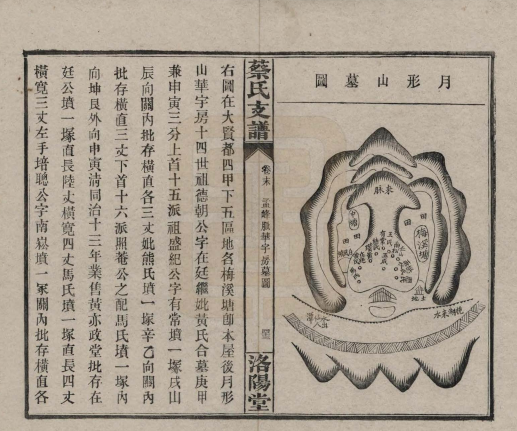 月形山墓圖
來脈
田
中嘴
田
梅溪塘
田
土地
桃湖來水
水出
蔡氏支譜
卷末
孟鋒歷華字房墓圖
洛陽堂
右圖在大賢都四甲下五區地名梅溪塘卽本屋後月形
山華字房十四世祖德朝公字在廷繼妣黃氏合墓庚甲
兼申寅三分上首十五派祖盛紀公字有常墳一塚戌山
辰向關內批存橫直各三丈妣熊氏墳一塚辛乙向關內
批存橫直三丈下首十六派照菴公之配馬氏墳一塚內
向坤艮外向申寅淸同治十三年業售黃亦政堂批存在
廷公墳一塚直長陸丈橫寬四丈馬氏墳一塚直長四丈
橫寬三丈左手培聰公字南崧墳一冢關內批存橫直各